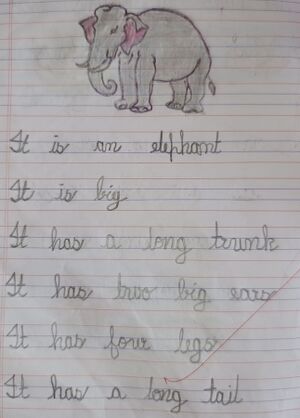 It is an elephant
It is big
It has a long trunk
It has two big ears
It has four legs
It has a long tail